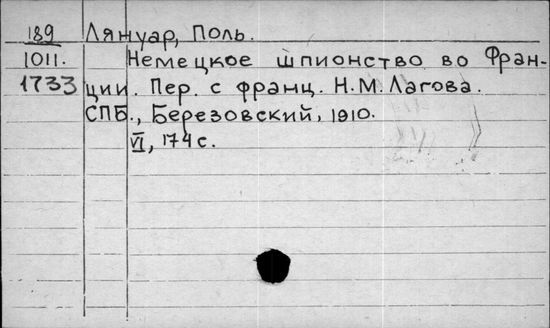 189 Лянуар, Поль.
1011. Немецкое шпионство во Фран-
1733 ции. Пер. с франц. Н.М. Лагова.
СПБ., Березовский, 1910.
VI, 174 с.